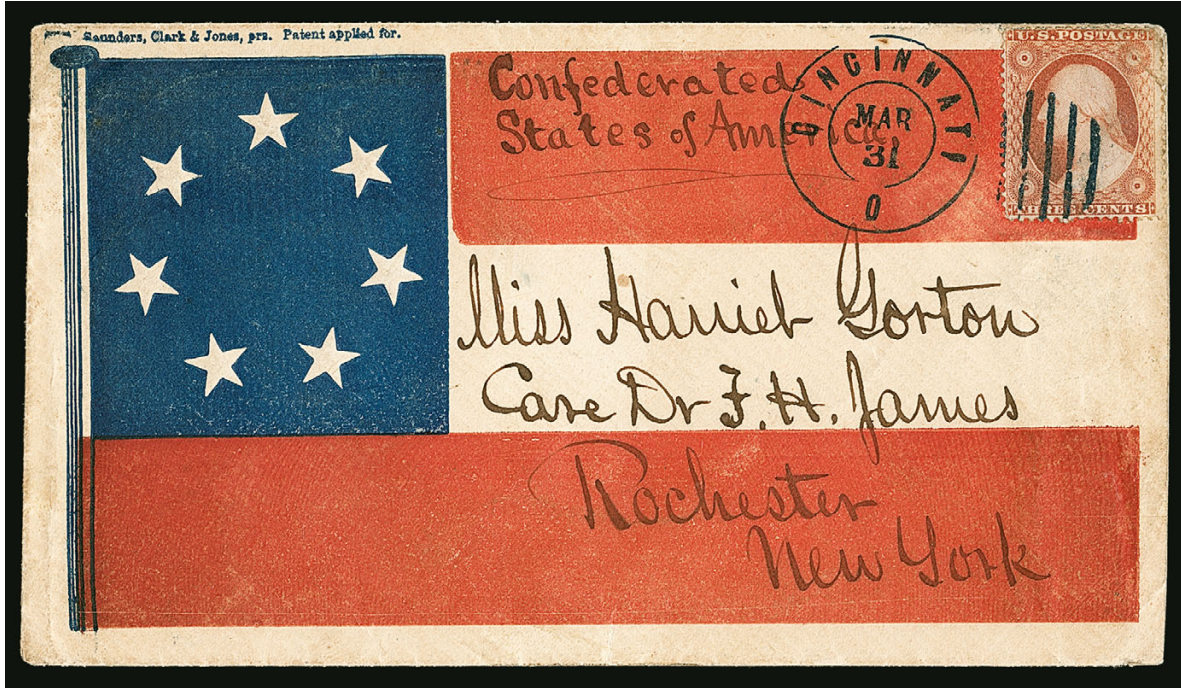 Saunders, Clark & Jones, prs. Patent applied for.
Confederated
States of America
CINCINNATI
MAR
31
O
U.S. POSTAGE
THREE CENTS
Miss Harriet Gorton
Care Dr F. H. James
Rochester
New York